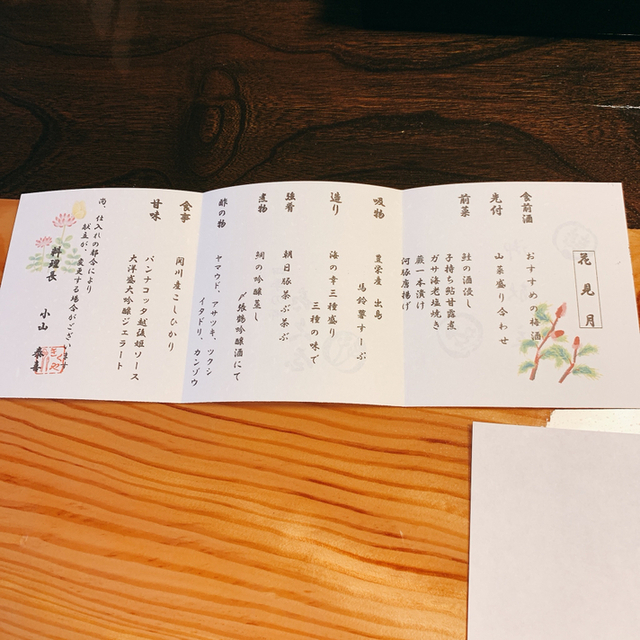 花見月
食前酒
おすすめの梅酒
先付
山菜盛り合わせ
前菜
鮭の酒浸し
子持ち鮎甘露煮
ガサ海老塩焼き
蕨一本漬け
河豚唐揚げ
吸物
真栄産 出島
馬鈴薯すーぷ
造り
海の幸三種盛り
三種の味で
強肴
朝日豚茶ぶ茶ぶ
煮物
鯛の吟醸蒸し
〆張鶴吟醸酒にて
酢の物
ヤマウド、アサツキ、ツクシ
イタドリ、カンゾウ
食事
関川産こしひかり
甘味
パンナコッタ越後姫ソース
大洋盛大吟醸ジェラート
尚、仕入れの都合により
献立が変更する場合がございます
料理長 小山